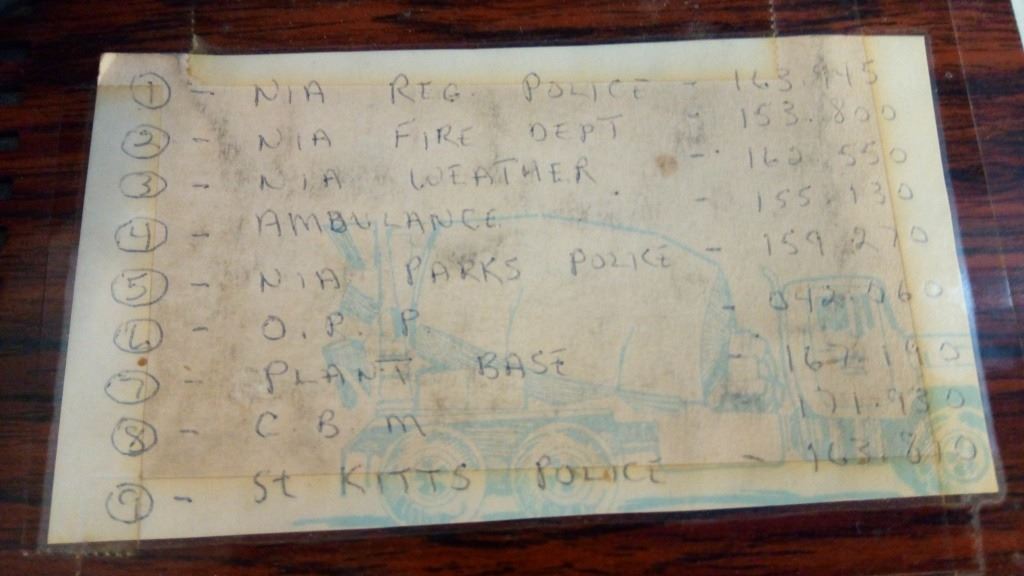 ① - NIA REG. POLICE - 163.945
② - NIA FIRE DEPT - 153.800
③ - NIA WEATHER - 162.550
④ - AMBULANCE - 155.130
⑤ - NIA PARKS POLICE - 159.270
⑥ - O.P.P. - 042.060
⑦ - PLANT BASE - 167.190
⑧ - C.B.M - 171.930
⑨ - St KITTS POLICE - 163.810